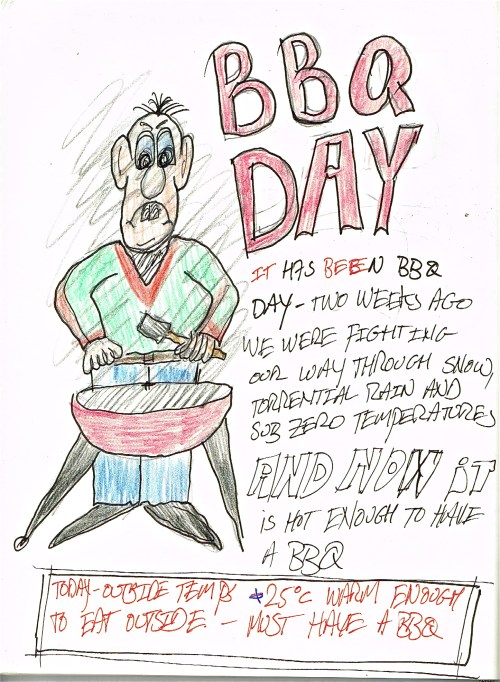 BBQ
DAY
IT HAS BEEEN BBQ
DAY - TWO WEEKS AGO
WE WERE FIGHTING
OUR WAY THROUGH SNOW,
TORRENTIAL RAIN AND
SUB ZERO TEMPERATURES
AND NOW IT
IS HOT ENOUGH TO HAVE
A BBQ
TODAY - OUTSIDE TEMPS +25°C WARM ENOUGH
TO EAT OUTSIDE - MUST HAVE A BBQ